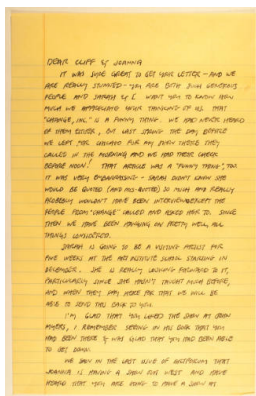 DEAR CLIFF & JOANNA
IT WAS SURE GREAT TO GET YOUR LETTER – AND WE
ARE REALLY STUNNED – YOU ARE BOTH SUCH GENEROUS
PEOPLE AND SARAH & I WANT YOU TO KNOW HOW
MUCH WE APPRECIATE YOUR THINKING OF US. THAT
"CHANGE, INC." IS A FUNNY THING. WE HAD NEVER HEARD
OF THEM EITHER, BUT LAST SPRING THE DAY BEFORE
WE LEFT FOR CHICAGO FOR MY SHOW THERE THEY
CALLED IN THE MORNING AND WE HAD THEIR CHECK
BEFORE NOON! THAT ARTICLE WAS A "FUNNY THING" TOO
IT WAS VERY EMBARRASSING – SARAH DIDN'T KNOW SHE
WOULD BE QUOTED (AND MIS-QUOTED) SO MUCH AND REALLY
PROBABLY WOULDN'T HAVE BEEN INTERVIEWED EXCEPT THE
PEOPLE FROM "CHANGE" CALLED AND ASKED HER TO. SINCE
THEN WE HAVE BEEN HANGING ON PRETTY WELL, ALL
THINGS CONSIDERED.
SARAH IS GOING TO BE A VISITING ARTIST FOR
FIVE WEEKS AT THE ART INSTITUTE SCHOOL STARTING IN
DECEMBER. SHE IS REALLY LOOKING FORWARD TO IT,
PARTICULARLY SINCE SHE HASN'T TAUGHT MUCH BEFORE,
AND WHEN THEY PAY HERE FOR THAT WE WILL BE
ABLE TO SEND THIS BACK TO YOU.
I'M GLAD THAT YOU LIKED THE SHOW AT
MYERS, I REMEMBER SEEING IN HIS BOOK THAT YOU
HAD BEEN THERE & WAS GLAD THAT YOU HAD BEEN ABLE
TO GET DOWN.
WE SAW IN THE LAST ISSUE OF ARTFORUM THAT
JOANNA IS HAVING A SHOW OUT WEST AND HAVE
HEARD THAT YOU ARE GOING TO HAVE A SHOW AT